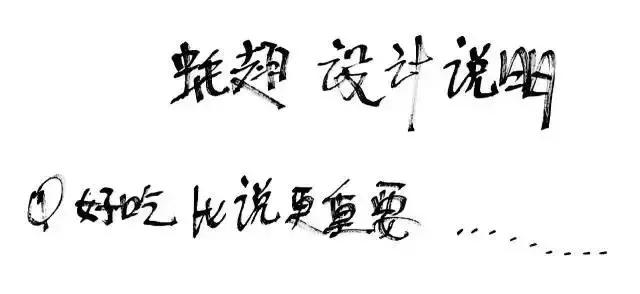 蚝翅 设计说明
①好吃比说更重要 ..........